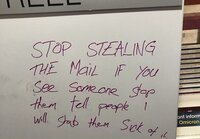 STOP STEALING
THE MAIL IF YOU
See Someone stop
them tell people I
will stab them Sick of it
Omicron